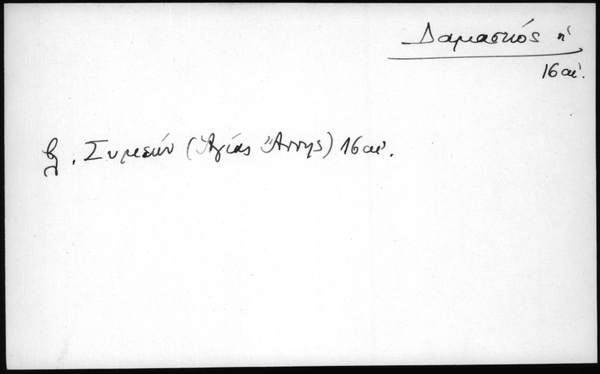 Δαμασκός η'
16 αι'.
βλ. Συμεών (Ἁγίας Ἄννης) 16 αι'.